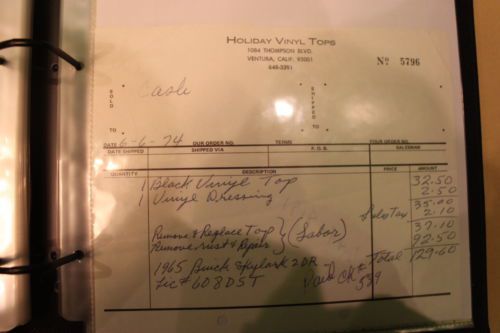 HOLIDAY VINYL TOPS
1084 THOMPSON BLVD.
VENTURA, CALIF. 93001
648-3391
No 5796
SOLD TO
Cash
SHIPPED TO
DATE 6-6-74 OUR ORDER NO. TERMS YOUR ORDER NO.
DATE SHIPPED SHIPPED VIA F.O.B. SALESMAN
QUANTITY DESCRIPTION PRICE AMOUNT
1 Black Vinyl Top 32.50
1 Vinyl Dressing 2.50
35.00
Sales Tax 2.10
37.10
Remove & Replace Top
Remove rust & Repair } (Labor) 92.50
1965 Buick Skylark 2DR Total 129.60
Lic# 608DST Paid Ck#
539